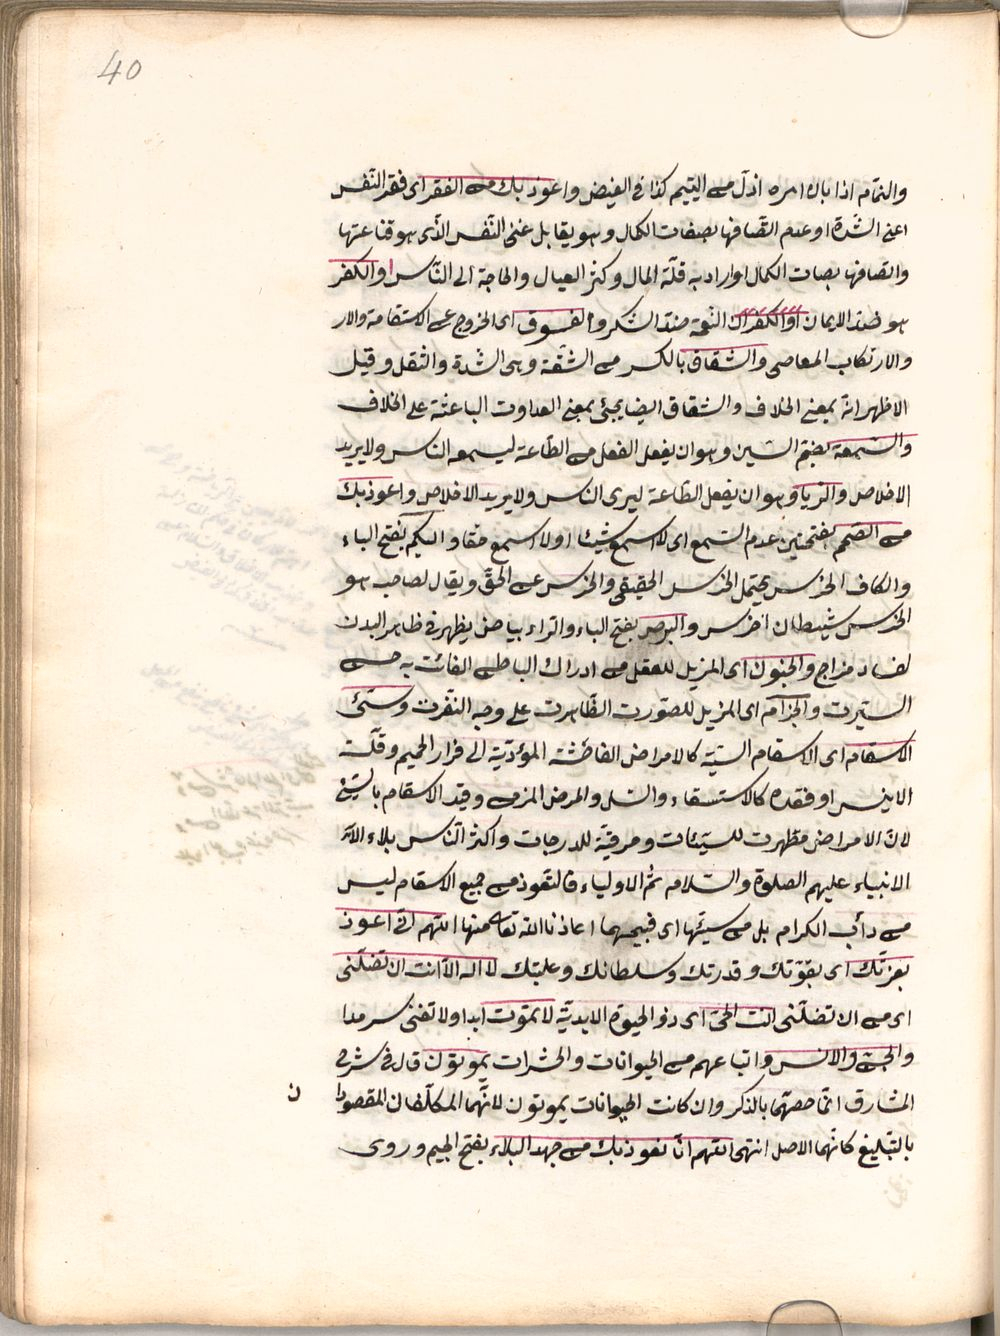 40
والنمام اذا بال امره اذل من اليتيم كذا فى الفيض واعوذ بك من الفقر اى فقر النفس
اعنى الشره او عدم اتصافها بصفات الكمال وهو يقابل غنى النفس الذى هو قناعتها
واتصافها بصفات الكمال او اراد به قلة المال وكثر العيال والحاجة الى الناس والكفر
هو ضد الايمان او الكفران النعمة ضد الشكر والفسوق اى الخروج عن الاستقامة والار
والارتكاب المعاصى والشقاق بالكسر من الشقة وهى الشدة والثقل وقيل
الاظهر انه بمعنى الخلاف والشقاق ايضا يجئ بمعنى العداوت الباعثة على الخلاف
والسمعة بضم السين وهو ان يفعل الفعل من الطاعة ليسمعه الناس ولا يريد
الاخلاص والريا وهو ان يفعل الطاعة ليرى الناس ولا يريد الاخلاص واعوذ بك
من الصمم بفتحتين عدم السمع اى لا اسمع شيئا اولا اسمع حقا والبكم بفتح الباء
والكاف الخرس يحتمل الخرس الحقيقى والخرس عن الحق ويقال لصاحب هو
الخرس شيطان اخرس والبرص بفتح الباء والراء بياض يظهر فى ظاهر البدن
لفساد مزاج والجنون اى المزيل للعقل من ادراك الباطل الفائت به حسن
السيرت والجزام اى المزيل للصورت الظاهرت على وجه النفرت وسئ
الاسقام اى الاسقام السيئة كالامراض الفاحشة المؤدية الى فرار الحميم وقلت
الانيس او فقده كالاستسقاء والسل والمرض المزمن وقيد الاسقام بالسئ
لان الامراض مطهرت للسيئات ومرقية للدرجات واكثر الناس بلاء الا
الانبياء عليهم الصلوة والسلام ثم الاولياء فالتعوذ من جميع الاسقام ليس
من دأب الكرام بل من سيئها اى قبيحها اعاذنا الله تعا منها اللهم انى اعوذ
بعزتك اى بقوتك وقدرتك وسلطانك وغلبتك لا اله الا انت ان تضلنى
اى من ان تضلنى انت الحى اى ذو الحيوة الابدية لا تموت ابدا ولا تفنى سرمدا
والجن والانس واتباعهم من الحيوانات والحشرات يموتون قال فى شرح
المشارق انما خصهما بالذكر وان كانت الحيوانات يموتون لانهما المكلفان المقصودا
ن
بالتبليغ كانهما الاصل انتهى اللهم انا نعوذ بك من جهد البلاء بفتح الجيم وروى